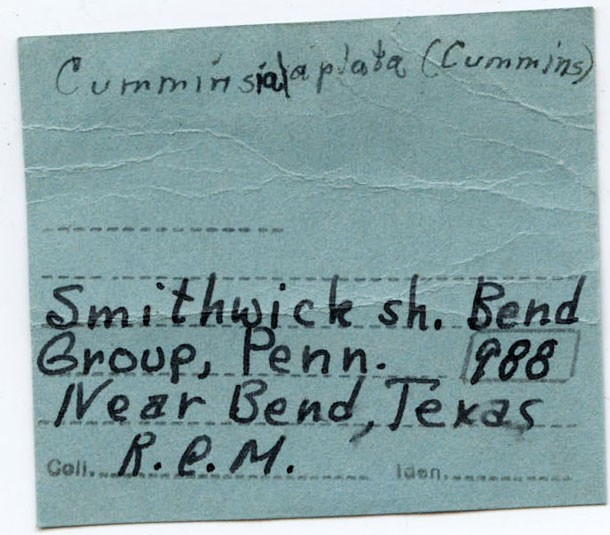 Cumminsia aplata (Cummins)
Smithwick sh. Bend
Group, Penn. 988
Near Bend, Texas
Coll. R.P.M. Iden.